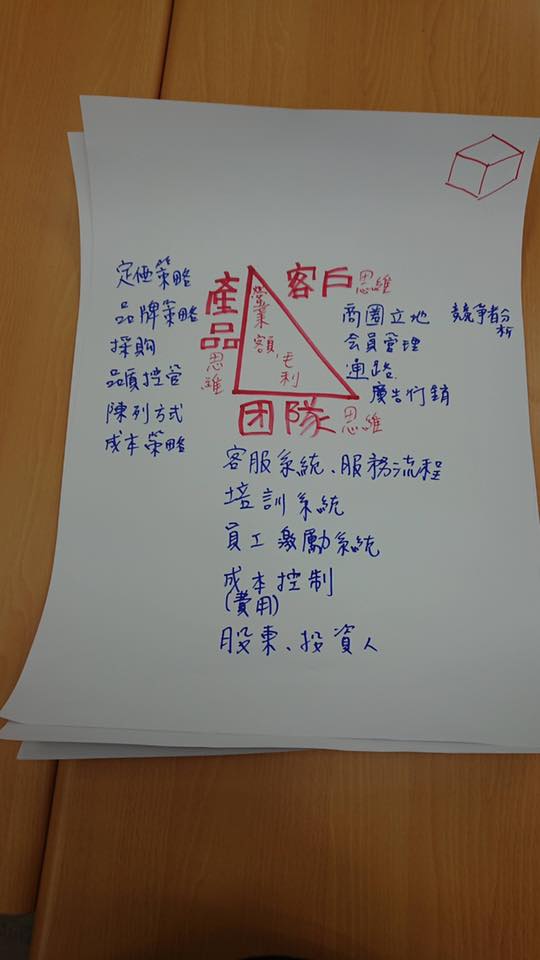 產品思維
定価策略
品牌策略
採購
品質控管
陳列方式
成本策略
營業額、毛利
客戶思維
商圈立地
会員管理
通路
廣告行銷
競爭者分析
团隊思維
客服系統、服務流程
培訓系統
員工激勵系統
成本控制
(費用)
股東、投資人